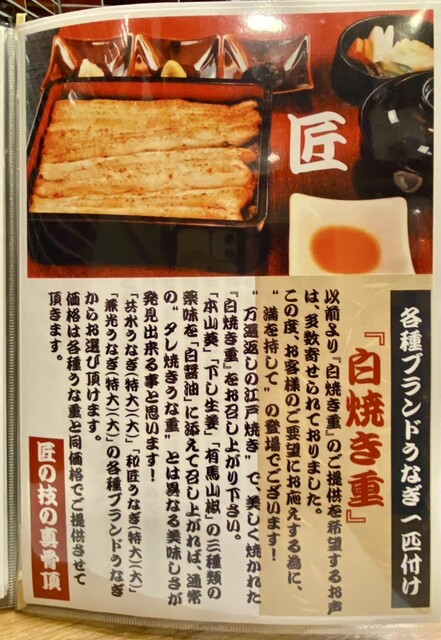 匠
各種ブランドうなぎ一匹付け
『白焼き重』
以前より『白焼き重』のご提供を希望するお声
は、多数寄せられておりました。
この度、お客様のご要望にお応えする為に、
“満を持して”の登場でございます!
“万遍返しの江戸焼き”で、美しく焼かれた
『白焼き重』をお召し上がり下さい。
「本山葵」「下し生姜」「有馬山椒」の三種類の
薬味を「白醤油」に添えて召し上がれば、通常
の“タレ焼きうな重”とは異なる美味しさが
発見出来る事と思います!
「共水うなぎ(特大)(大)」「和匠うなぎ(特大)(大)」
「兼光うなぎ(特大)(大)」の各種ブランドうなぎ
からお選び頂けます。
価格は各種うな重と同価格でご提供させて
頂きます。
匠の技の真骨頂